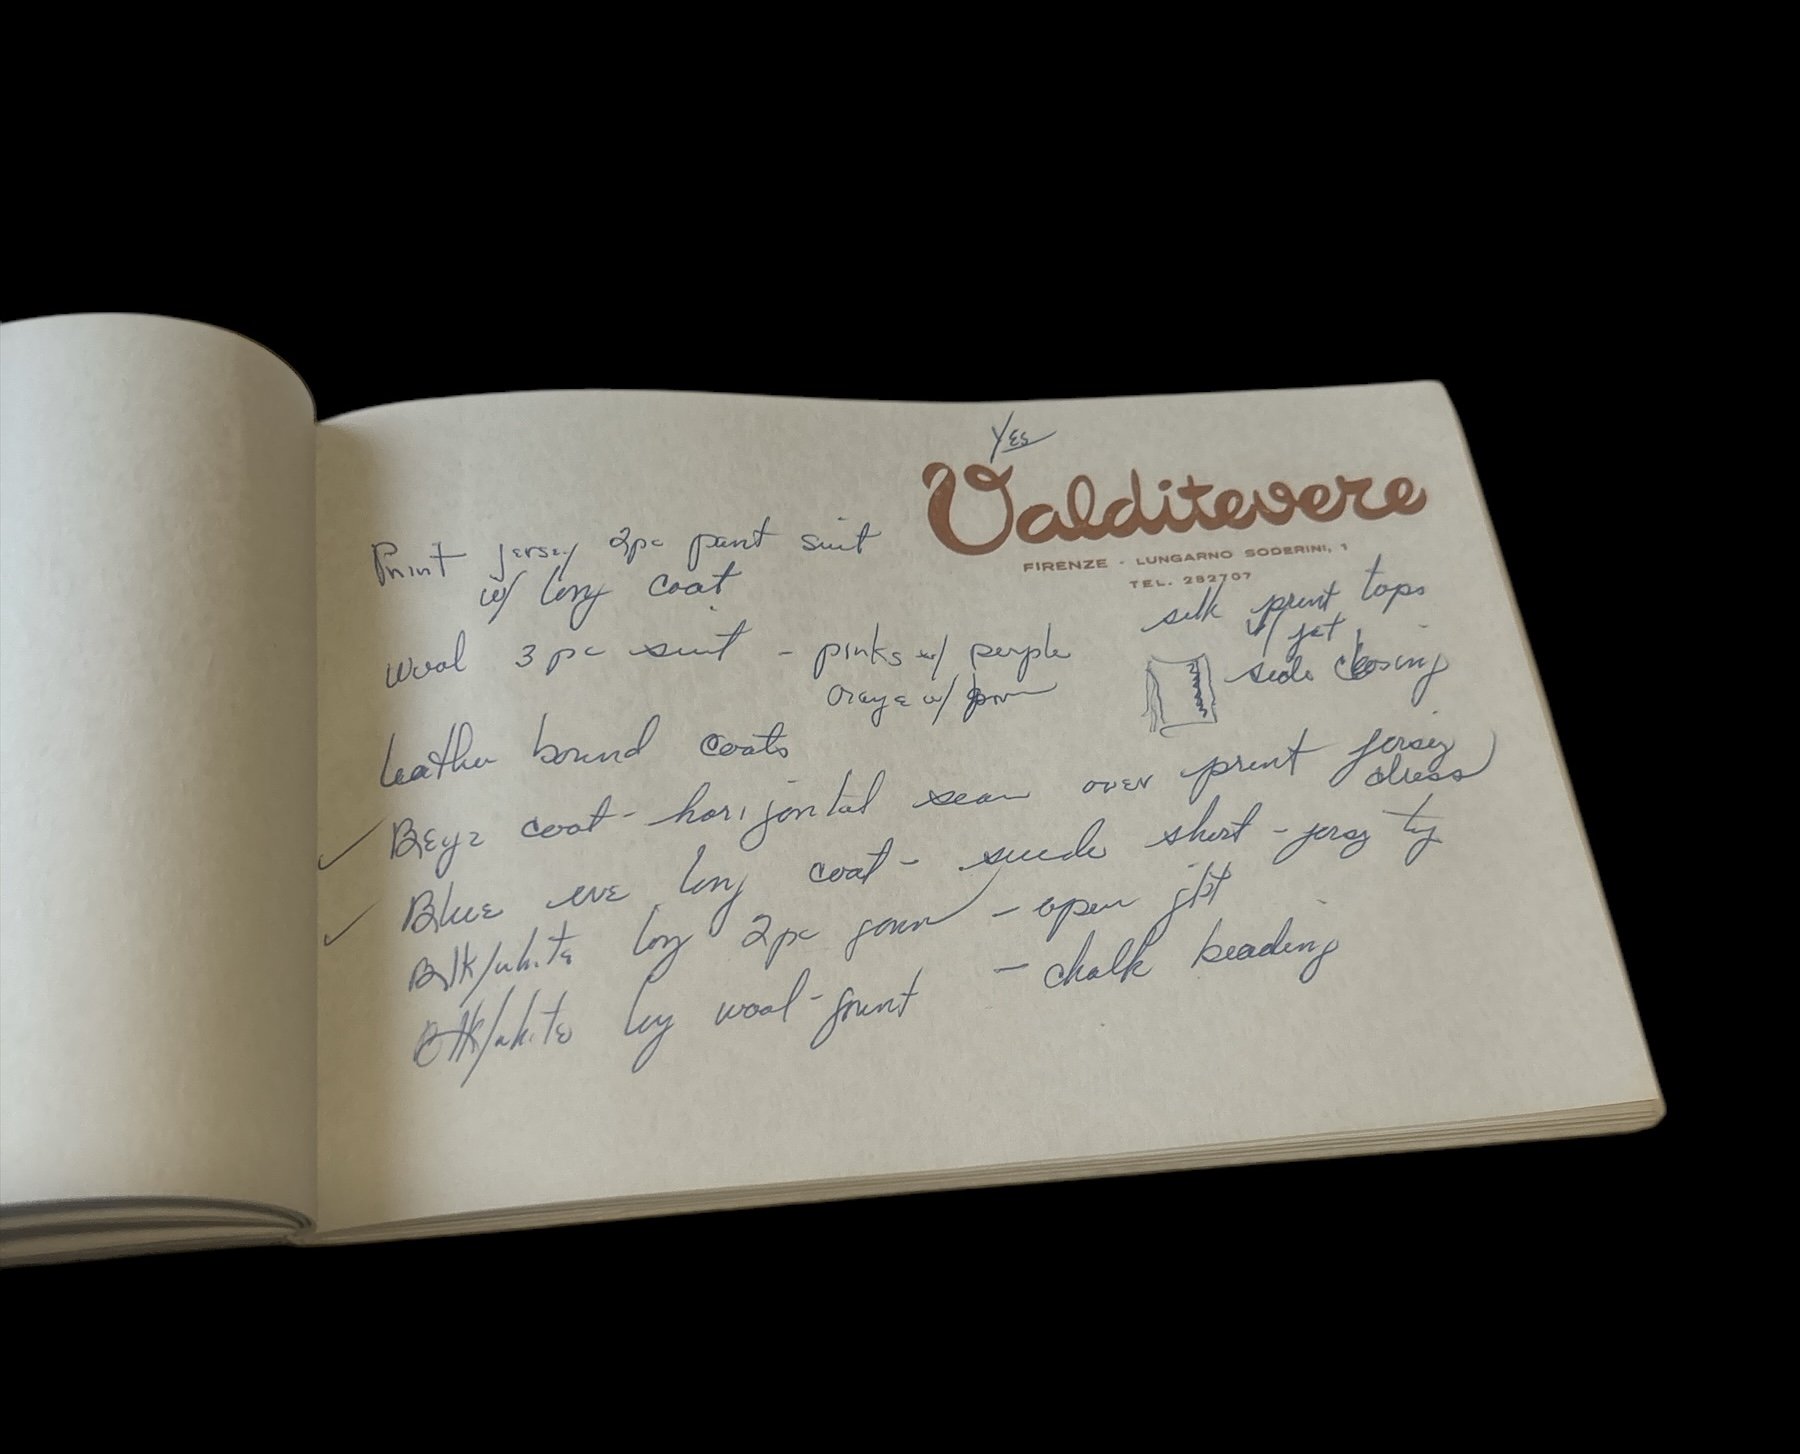 Yes
Valditevere
FIRENZE - LUNGARNO SODERINI, 1
TEL. 282707
Print jersey 2pc pant suit
w/ long coat
silk print tops
w/ jet
side closing
wool 3 pc suit - pinks w/ purple
orange w/
leather bound coats
✓ Beyz coat - horizontal seam over print jersey
dress
✓ Blue eve long coat - suede short - jersey
Blk/white long 2pc gown - open
Blk/white long wool print - chalk beading